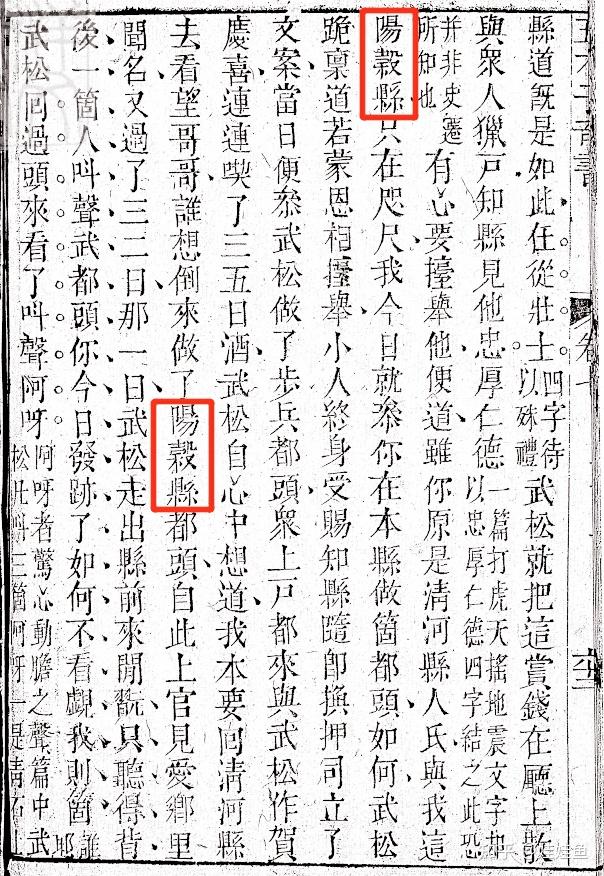 卷七
縣道既是如此任從壯士四字待以殊禮武松就把這賞錢在廳上散
與眾人獵戶知縣見他忠厚仁德一篇打虎天搖地震文字却以忠厚仁德四字結之此恐
并非史遷所知也有心要擡舉他便道雖你原是清河縣人氏與我這
陽穀縣只在咫尺我今日就叅你在本縣做箇都頭如何武松
跪稟道若蒙恩相擡舉小人終身受賜知縣隨即換押司立了
文案當日便叅武松做了步兵都頭眾上戸都來與武松作賀
慶喜連連喫了三五日酒武松自心中想道我本要回清河縣
去看望哥哥誰想倒來做了陽穀縣都頭自此上官見愛鄉里
聞名又過了三二日那一日武松走出縣前來閒翫只聽得背
後一箇人叫聲武都頭你今日發跡了如何不看覷我則箇誰耶
武松回過頭來看了叫聲阿呀阿呀者驚心動膽之聲篇中武松三箇阿呀一是青石上